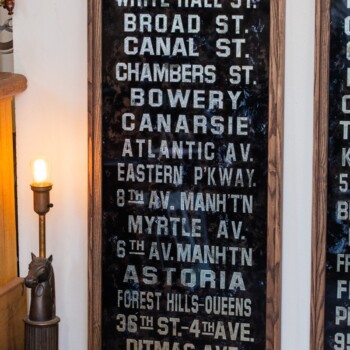 WHITE HALL ST.
BROAD ST.
CANAL ST.
CHAMBERS ST.
BOWERY
CANARSIE
ATLANTIC AV.
EASTERN P'KWAY.
8TH AV. MANH'TN
MYRTLE AV.
6TH AV. MANH'TN
ASTORIA
FOREST HILLS-QUEENS
36TH ST.-4TH AVE.
DITMAS AVE.